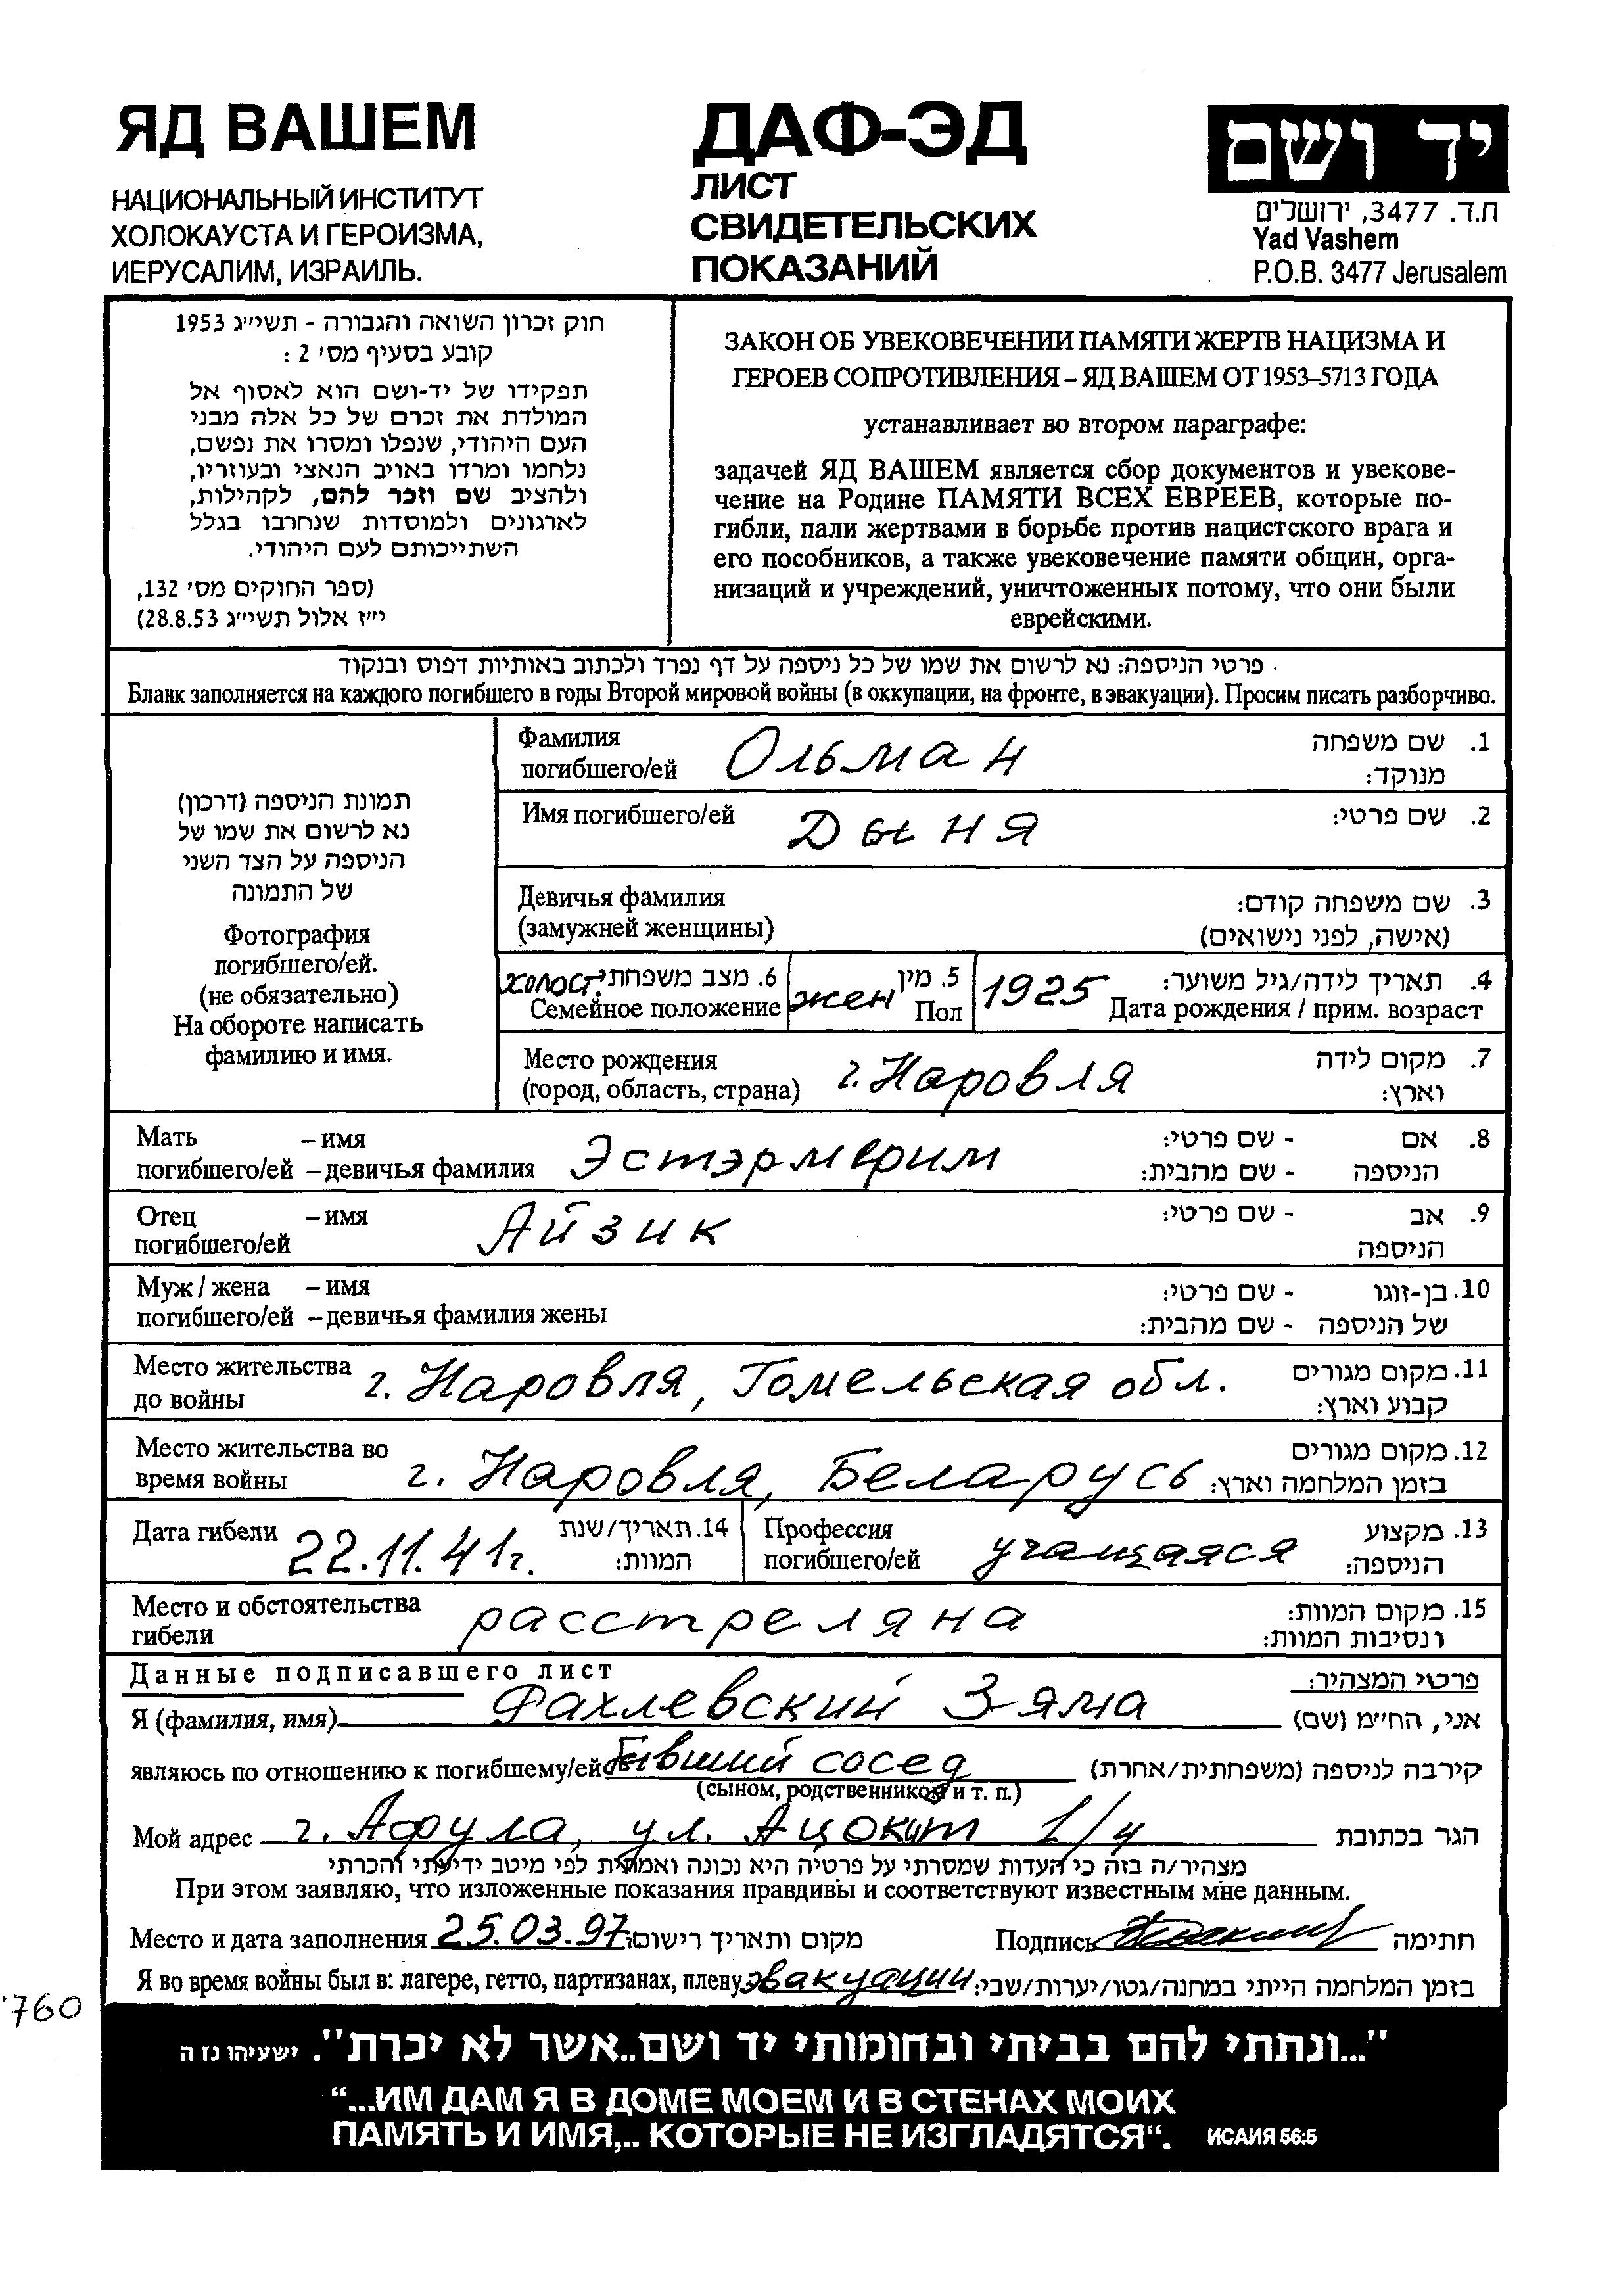 ЯД ВАШЕМ
НАЦИОНАЛЬНЫЙ ИНСТИТУТ
ХОЛОКАУСТА И ГЕРОИЗМА,
ИЕРУСАЛИМ, ИЗРАИЛЬ.
ДАФ-ЭД
ЛИСТ
СВИДЕТЕЛЬСКИХ
ПОКАЗАНИЙ
יד ושם
ת.ד. 3477, ירושלים
Yad Vashem
P.O.B. 3477 Jerusalem
חוק זכרון השואה והגבורה - תשי״ג 1953
קובע בסעיף מס׳ 2 :
תפקידו של יד-ושם הוא לאסוף אל
המולדת את זכרם של כל אלה מבני
העם היהודי, שנפלו ומסרו את נפשם,
נלחמו ומרדו באויב הנאצי ובעוזריו,
ולהציב שם וזכר להם, לקהילות,
לארגונים ולמוסדות שנחרבו בגלל
השתייכותם לעם היהודי.
(ספר החוקים מס׳ 132,
י״ז אלול תשי״ג 28.8.53)
ЗАКОН ОБ УВЕКОВЕЧЕНИИ ПАМЯТИ ЖЕРТВ НАЦИЗМА И
ГЕРОЕВ СОПРОТИВЛЕНИЯ – ЯД ВАШЕМ ОТ 1953–5713 ГОДА
устанавливает во втором параграфе:
задачей ЯД ВАШЕМ является сбор документов и увекове-
чение на Родине ПАМЯТИ ВСЕХ ЕВРЕЕВ, которые по-
гибли, пали жертвами в борьбе против нацистского врага и
его пособников, а также увековечение памяти общин, орга-
низаций и учреждений, уничтоженных потому, что они были
еврейскими.
פרטי הניספה: נא לרשום את שמו של כל ניספה על דף נפרד ולכתוב באותיות דפוס ובנקוד
Бланк заполняется на каждого погибшего в годы Второй мировой войны (в оккупации, на фронте, в эвакуации). Просим писать разборчиво.
תמונת הניספה (דרכון)
נא לרשום את שמו של
הניספה על הצד השני
של התמונה
Фотография
погибшего/ей.
(не обязательно)
На обороте написать
фамилию и имя.
Фамилия Ольман 1. שם משפחה
погибшего/ей מנוקד:
Имя погибшего/ей Дыня 2. שם פרטי:
Девичья фамилия 3. שם משפחה קודם:
(замужней женщины) (אישה, לפני נישואים)
холост. 6. מצב משפחתי: жен 5. מין 1925 4. תאריך לידה/גיל משוער:
Семейное положение Пол Дата рождения / прим. возраст
Место рождения г. Наровля 7. מקום לידה
(город, область, страна) וארץ:
Мать – имя Эстэрмерим - שם פרטי: 8. אם
погибшего/ей – девичья фамилия - שם מהבית: הניספה
Отец – имя Айзик - שם פרטי: 9. אב
погибшего/ей הניספה
Муж / жена – имя - שם פרטי: 10. בן-זוגו
погибшего/ей – девичья фамилия жены - שם מהבית: של הניספה
Место жительства г. Наровля, Гомельская обл. 11. מקום מגורים
до войны קבוע וארץ:
Место жительства во г. Наровля, Беларусь 12. מקום מגורים
время войны בזמן המלחמה וארץ:
Дата гибели 22.11.41г. 14. תאריך/שנת המוות:
Профессия учащаяся 13. מקצוע
погибшего/ей הניספה:
Место и обстоятельства расстреляна 15. מקום המוות:
гибели ונסיבות המוות:
Данные подписавшего лист פרטי המצהיר:
Я (фамилия, имя) Фахлевский Зяма אני, הח״מ (שם)
являюсь по отношению к погибшему/ей бывший сосед קירבה לניספה (משפחתית/אחרת)
(сыном, родственником и т. п.)
Мой адрес г. Афула, ул. Ацокит 1/4 הגר בכתובת
מצהיר/ה בזה כי העדות שמסרתי על פרטיה היא נכונה ואמתית לפי מיטב ידיעתי והכרתי
При этом заявляю, что изложенные показания правдивы и соответствуют известным мне данным.
Место и дата заполнения 25.03.97 מקום ותאריך רישום: Подпись חתימה
Я во время войны был в: лагере, гетто, партизанах, плену, эвакуации בזמן המלחמה הייתי במחנה/גטו/יערות/שבי:
760
"...ונתתי להם בביתי ובחומותי יד ושם..אשר לא יכרת". ישעיהו נז ה
“...ИМ ДАМ Я В ДОМЕ МОЕМ И В СТЕНАХ МОИХ
ПАМЯТЬ И ИМЯ,.. КОТОРЫЕ НЕ ИЗГЛАДЯТСЯ“. ИСАИЯ 56:5